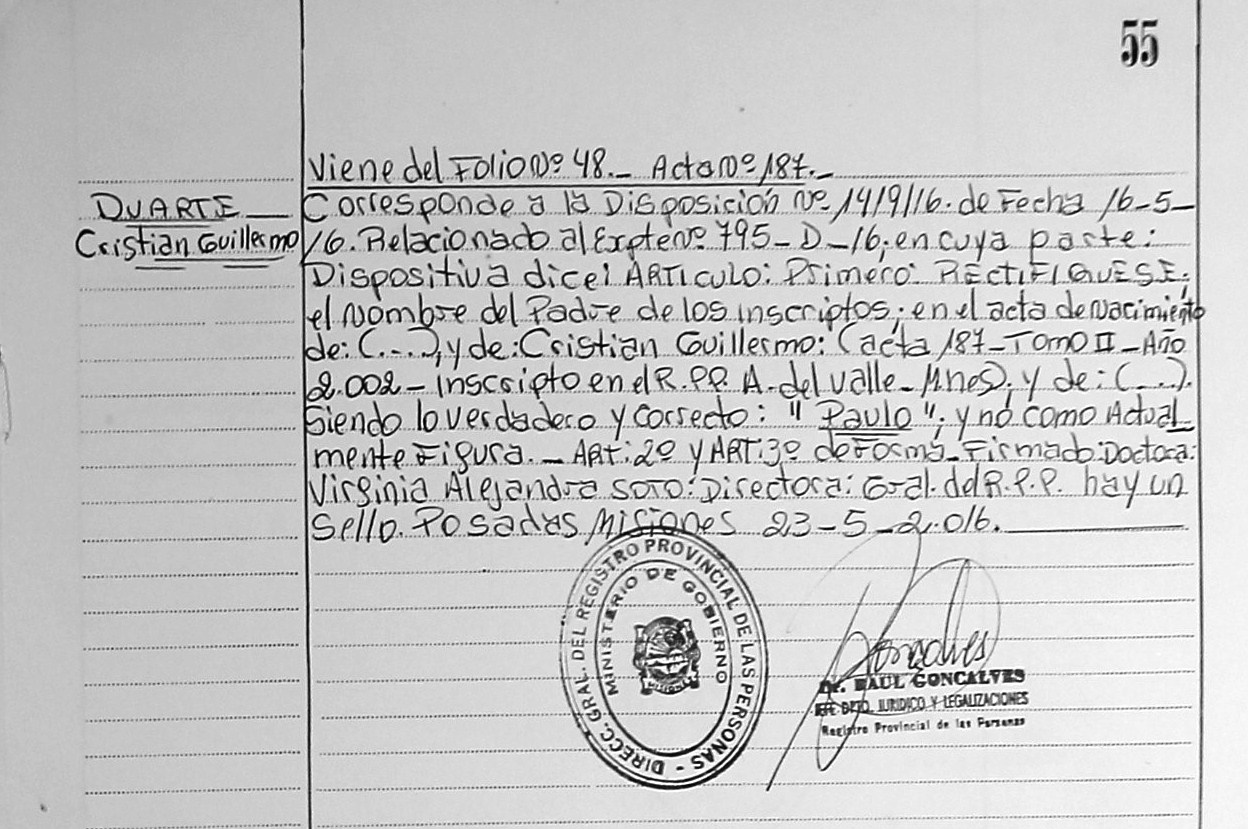 55
Viene del Folio Nº 48._ Acta Nº 187._
DUARTE
Cristian Guillermo
Corresponde a la Disposición Nº 1419/16. de Fecha 16-5-
16. Relacionado al Expte Nº 795-D-16; en cuya parte:
Dispositiva dice: ARTICULO: Primero: RECTIFIQUESE;
el Nombre del Padre de los inscriptos; en el acta de Nacimiento
de: (...), y de: Cristian Guillermo: (acta 187-Tomo II-Año
2.002- Inscripto en el R.PP. A. del Valle- Mnes); y de: (...).
Siendo lo verdadero y correcto: "Paulo"; y no como Actual
mente Figura._ Art: 2º y ART: 3º de Forma_ Firmado: Doctora:
Virginia Alejandra Soto: Directora: Gral. del R.P.P. hay un
Sello. Posadas Misiones 23-5-2.016.
DIRECC. GRAL. DEL REGISTRO PROVINCIAL DE LAS PERSONAS -
MINISTERIO DE GOBIERNO
MISIONES
Goncalves
Dr. RAUL GONCALVES
JEFE DPTO. JURIDICO Y LEGALIZACIONES
Registro Provincial de las Personas